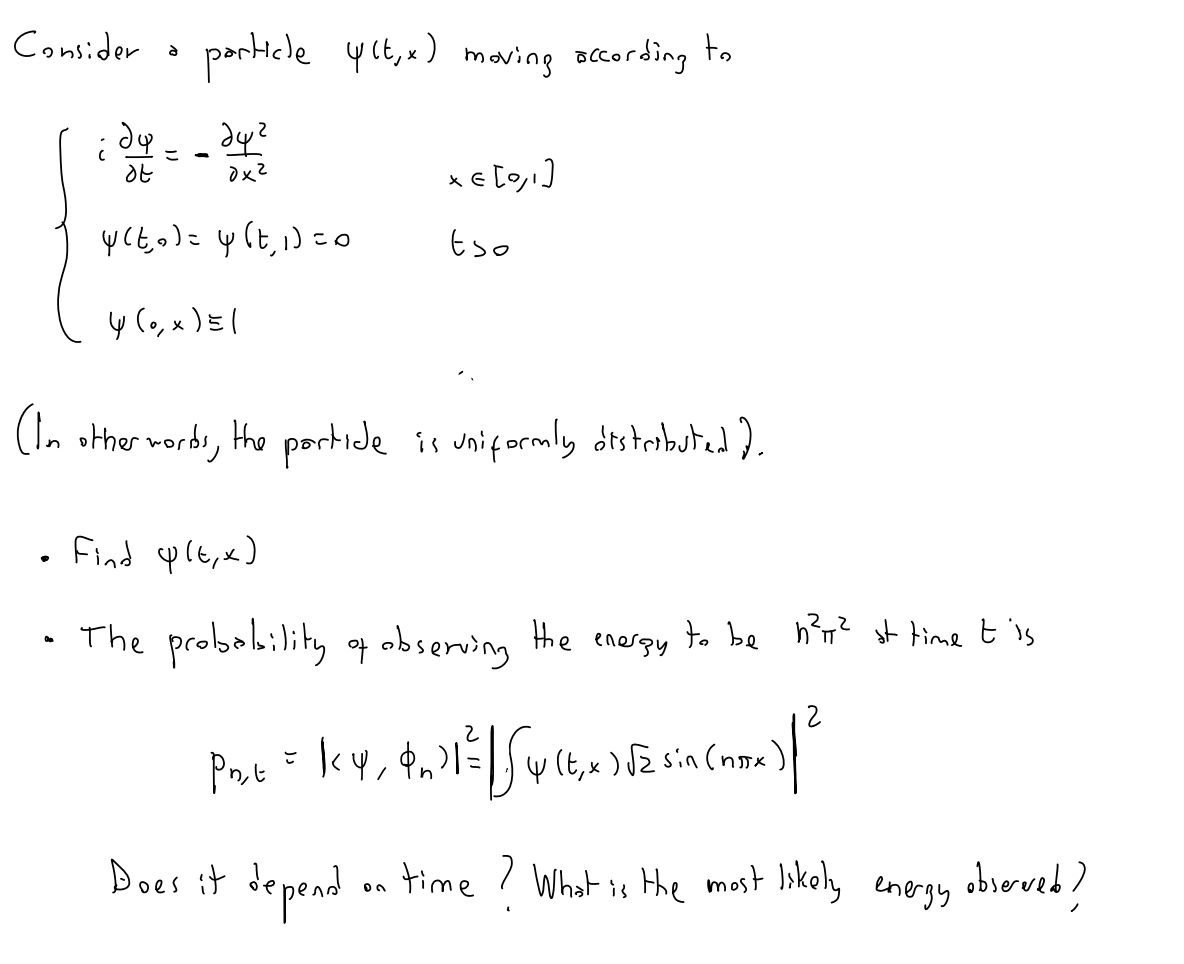 Consider a particle ψ(t,x) moving according to
i ∂ψ/∂t = - ∂ψ²/∂x²    x ∈ [0,1]
ψ(t,0) = ψ(t,1) = 0    t > 0
ψ(0,x) ≡ 1
(In other words, the particle is uniformly distributed).
• Find ψ(t,x)
• The probability of observing the energy to be n²π² at time t is
p_{n,t} = |<ψ, ϕ_n>|² = |∫ψ(t,x)√2 sin(nπx)|²
Does it depend on time? What is the most likely energy observed?